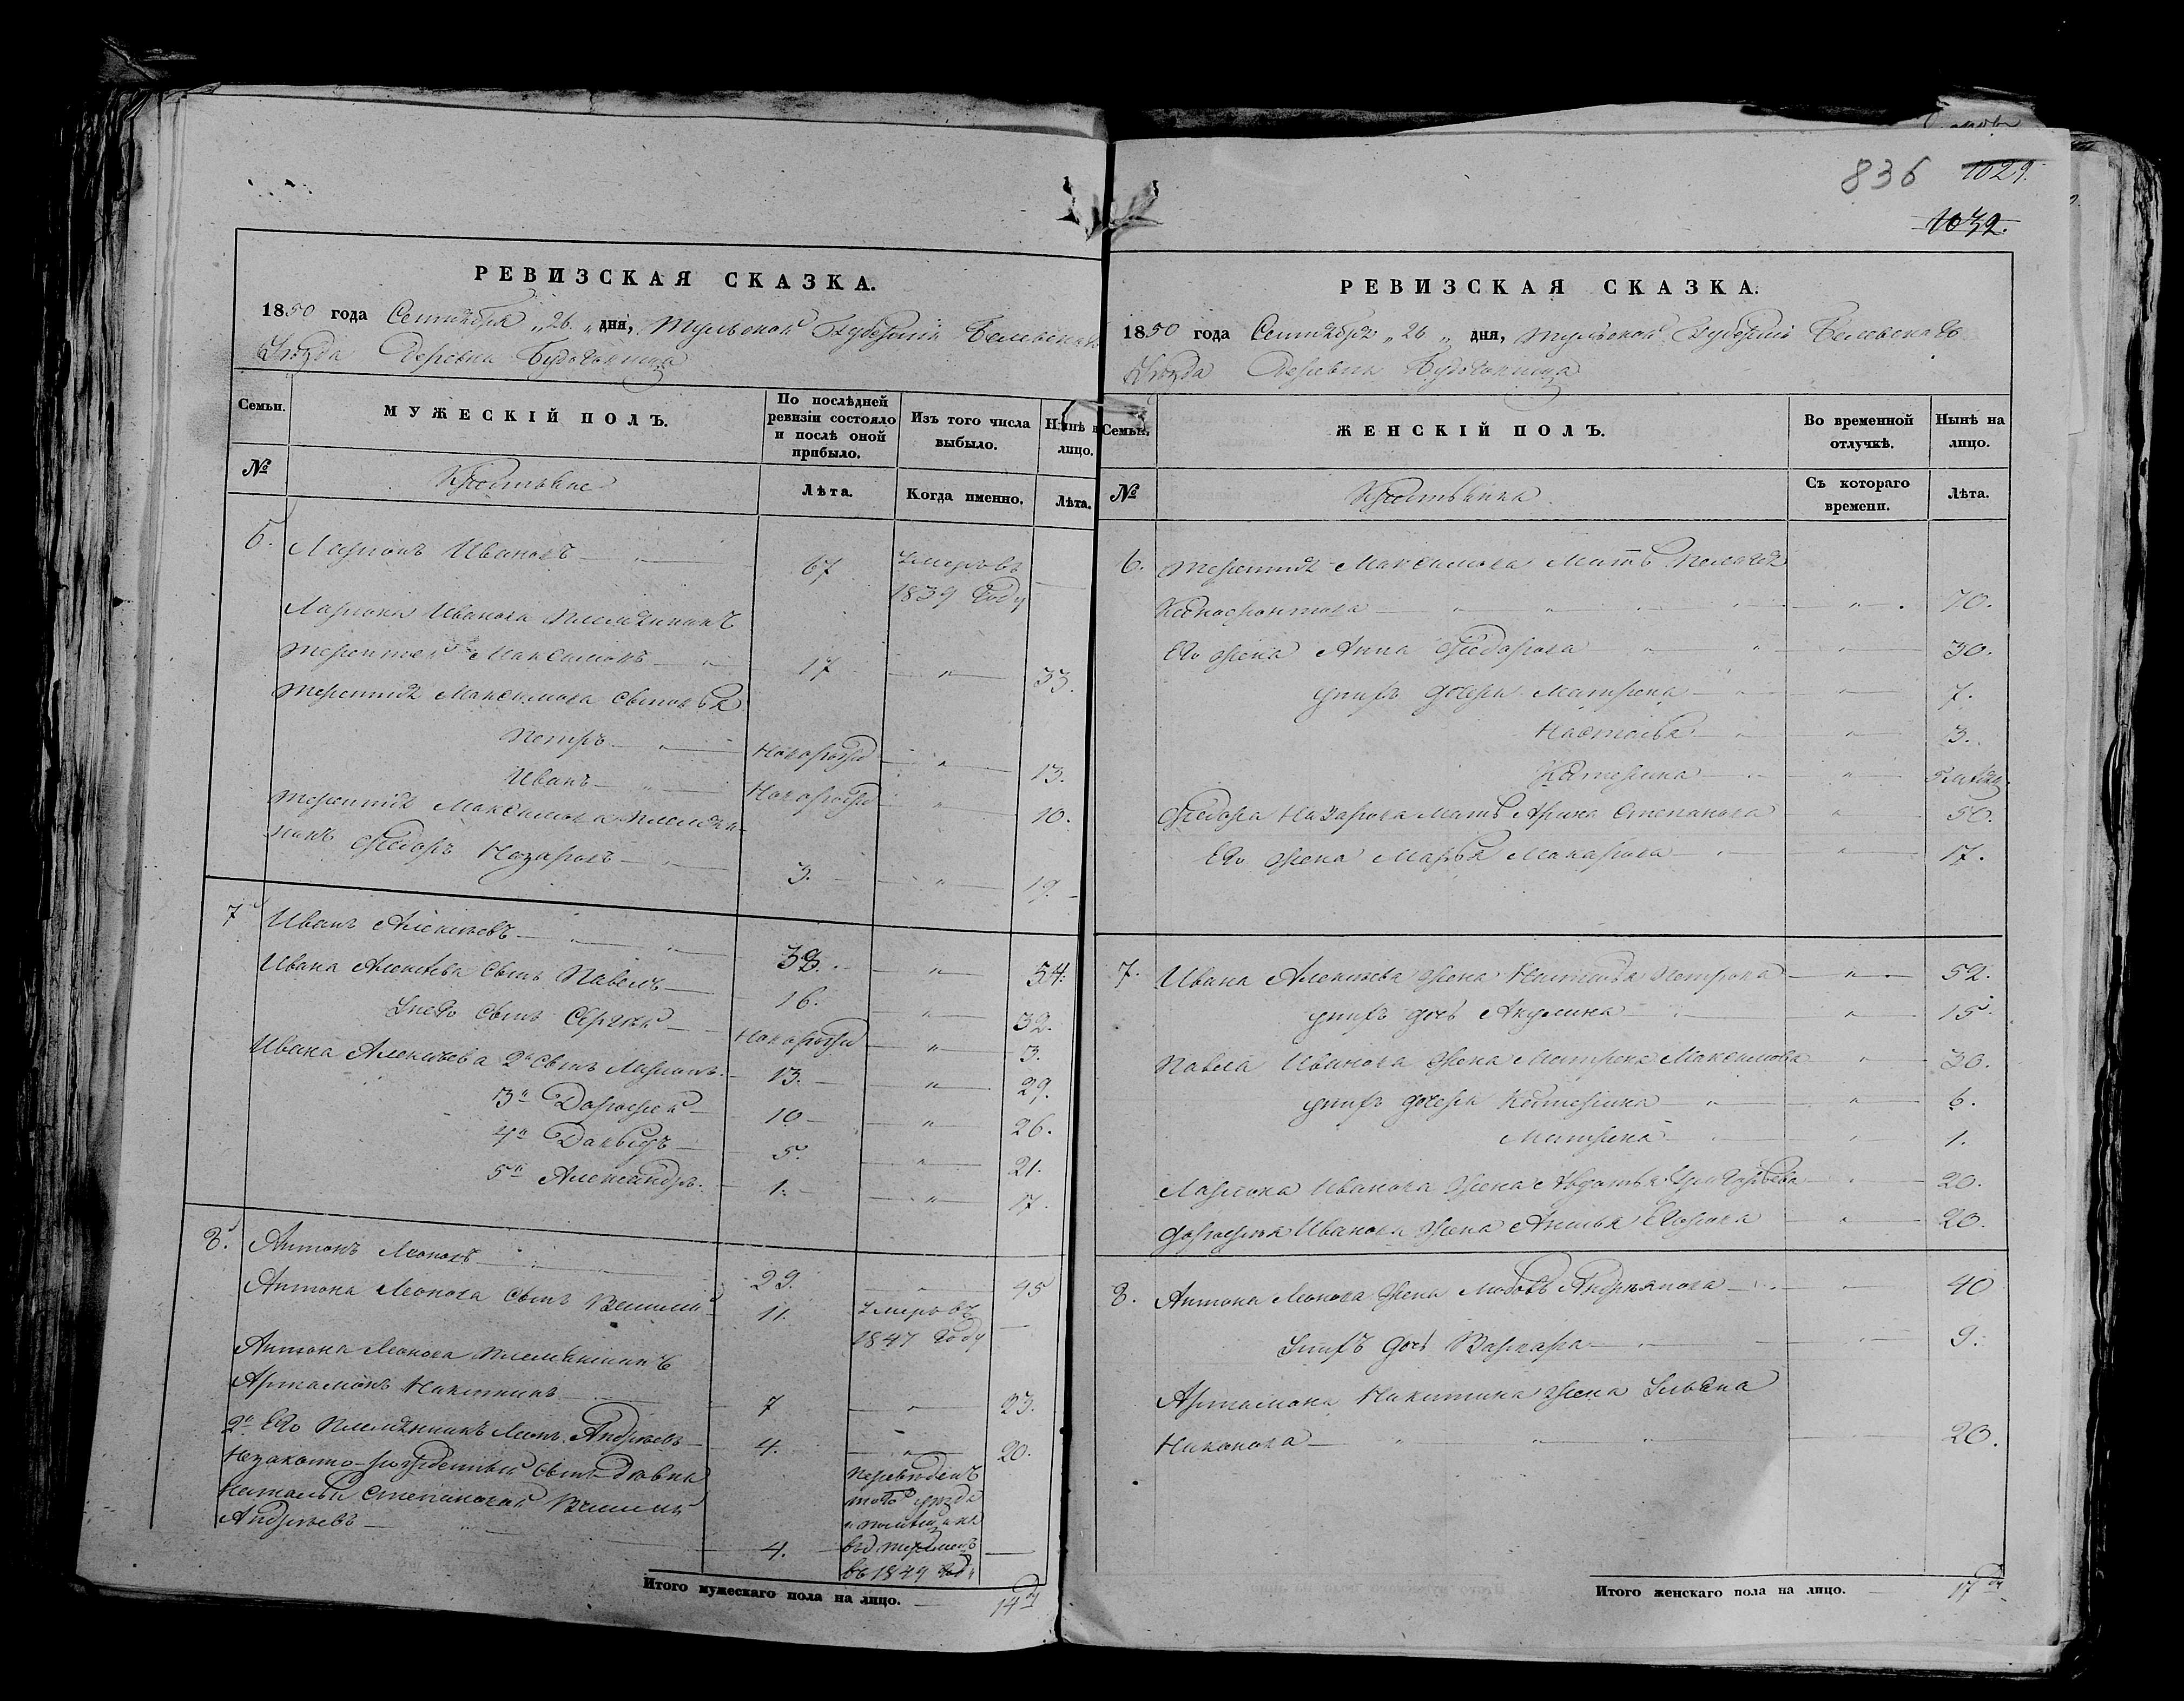 836 1029.
1032.
РЕВИЗСКАЯ СКАЗКА.
1850 года Сентября „26„ дня, Тульской Губерніи Белевскаго
Уѣзда Деревни
Семьи. МУЖЕСКІЙ ПОЛЪ. По послѣдней ревизіи состояло и послѣ оной прибыло. Изъ того числа выбыло. Нынѣ на лицо.
№ Крестьяне Лѣта. Когда именно. Лѣта.
6. Ларионъ Ивановъ 67 Умеръ въ
1839 году
Лариона Иванова племянникъ
Терентей Максимовъ 17 33.
Терентия Максимова сыновья
Петръ Новорожден 13.
Иванъ Новорожден 10.
Терентия Максимова племян-
никъ Федоръ Назаровъ 3. 19.
7 Иванъ Алексѣевъ 38. 54.
Ивана Алексѣева сынъ Павелъ 16. 32.
У него сынъ Сергѣй Новорожден 3.
Ивана Алексѣева 2й сынъ Ларионъ 13. 29.
3й Дорофей 10 26.
4й Давыдъ 5. 21.
5й Александръ 1. 17.
8. Антонъ Леоновъ 29. 45
Антона Леонова сынъ Василий 11. Умеръ въ
1847 году
Антона Леонова племянникъ
Артамонъ Никитинъ 7 23.
2й Его племянникъ Леонъ Андреевъ 4. 20.
Незаконно-рожденный сынъ
Натальи Степановой Василий
Андреевъ 4. Переведенъ
того уѣзда
въ 1849 году
Итого мужескаго пола на лицо. 14
РЕВИЗСКАЯ СКАЗКА.
1850 года Сентября „26„ дня, Тульской Губерніи Белевскаго
Уѣзда Деревни
Семьи. ЖЕНСКІЙ ПОЛЪ. Во временной отлучкѣ. Нынѣ на лицо.
№ Крестьянки. Съ котораго времени. Лѣта.
6. Терентия Максимова мать Пелагея
Ксенофонтова 70.
Его жена Анна Федорова 30.
у нихъ дочери Матрена 7.
Настасья 3.
Катерина
Федора Назарова мать Арина Степанова 50.
Его жена Марья Макарова 17.
7. Ивана Алексѣева жена Наталья Петрова 52.
у нихъ дочь Акулина 15.
Павла Иванова жена Матрена Максимова 30.
у нихъ дочери Катерина 6.
Матрена 1.
Лариона Иванова жена Авдотья Григорьева 20.
Дорофея Иванова жена Егорова 20.
8. Антона Леонова жена Любовь Андреянова 40
У нихъ дочь Варвара 9.
Артамона Никитина жена Ульяна
Никонова 20.
Итого женскаго пола на лицо. 17